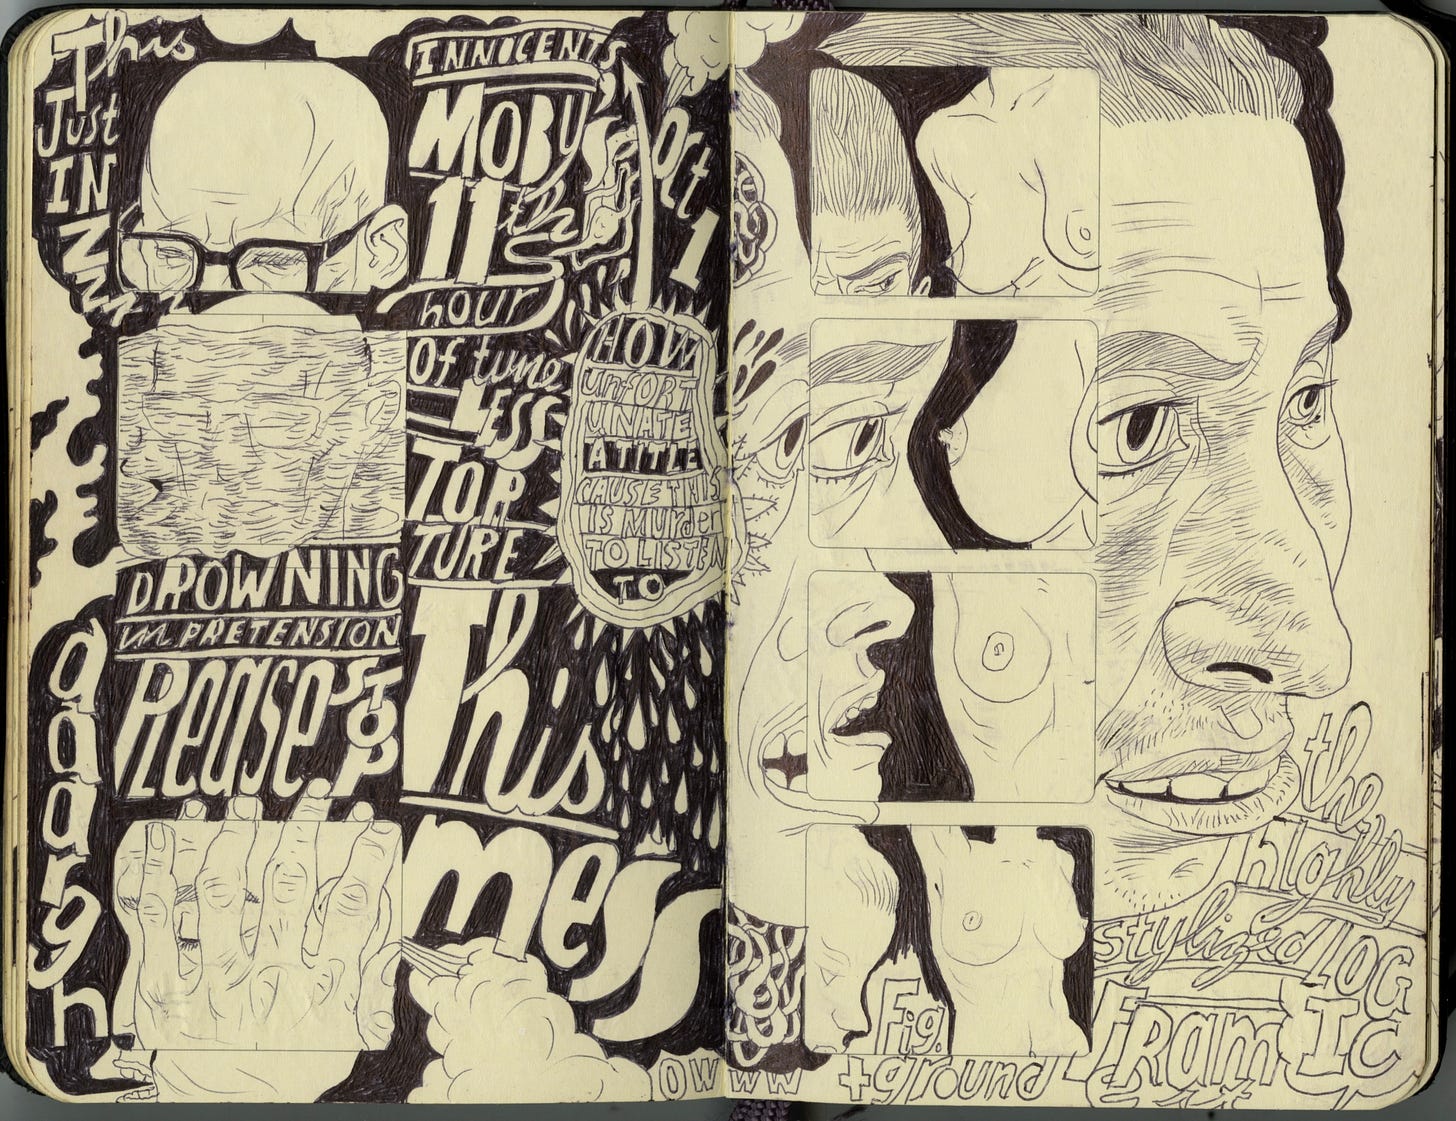 This
Just
IN
ZZ
Zzz
DROWNING
in PRETENSION
Please
STOP
aaargh
INNOCENTS,
MOBY'S
11th
hour
Of time
LESS
TOR
TURE
This
mess
Oct
1
HOW
UNFORT
UNATE
A TITLE
CAUSE THIS
IS MURDER
TO LISTEN
TO
OWWWW
Fig.
+ground
the
highly
stylized LOG
IC